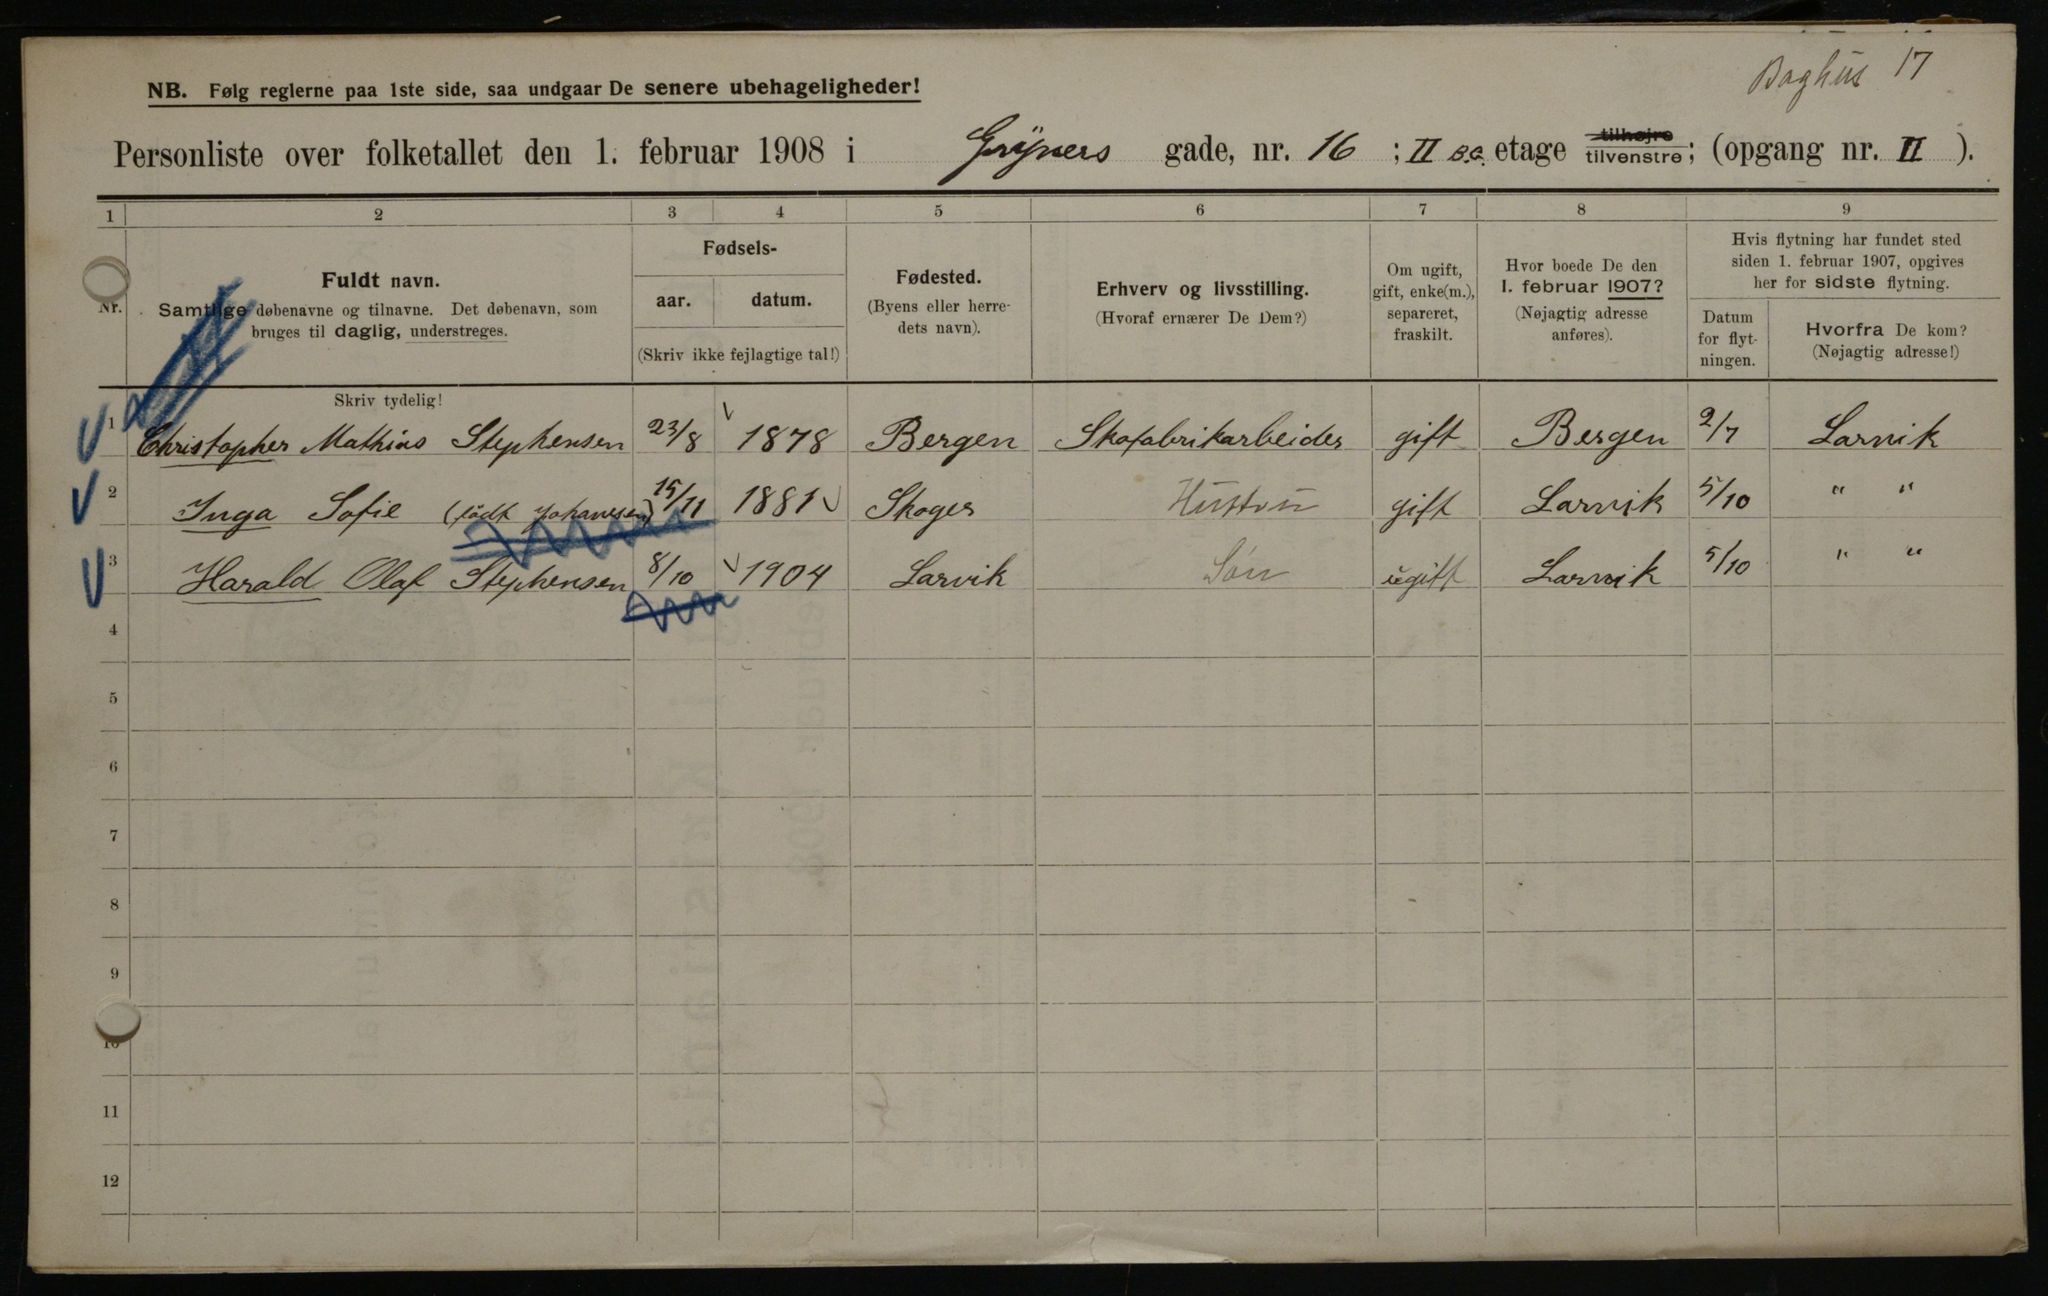 Baghus 17
NB. Følg reglerne paa 1ste side, saa undgaar De senere ubehageligheder!
Personliste over folketallet den 1. februar 1908 i Grÿners gade, nr. 16 ; II B.G. etage tilhøjre tilvenstre; (opgang nr. II ).
1 2 3 4 5 6 7 8 9
Nr.
Fuldt navn.
Samtlige døbenavne og tilnavne. Det døbenavn, som
bruges til daglig, understreges.
Skriv tydelig!
Fødsels-
aar. datum.
(Skriv ikke fejlagtige tal!)
Fødested.
(Byens eller herre-
dets navn).
Erhverv og livsstilling.
(Hvoraf ernærer De Dem?)
Om ugift,
gift, enke(m.),
separeret,
fraskilt.
Hvor boede De den
1. februar 1907?
(Nøjagtig adresse
anføres).
Hvis flytning har fundet sted
siden 1. februar 1907, opgives
her for sidste flytning.
Datum
for flyt-
ningen.
Hvorfra De kom?
(Nøjagtig adresse!)
1 Christopher Mathias Stephensen 23/8 1878 Bergen Skofabrikarbeider gift Bergen 2/7 Larvik
2 Inga Sofie (född Johannesen) 15/11 1881 Skoger Hustru gift Larvik 5/10 " "
3 Harald Olaf Stephensen 8/10 1904 Larvik Søn ugift Larvik 5/10 " "
4
5
6
7
8
9
10
11
12